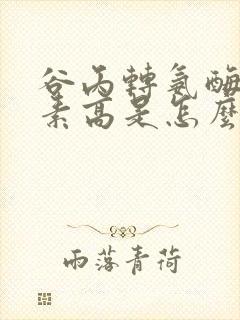 谷丙轉氨酶
素高是怎麼
雨落青荷